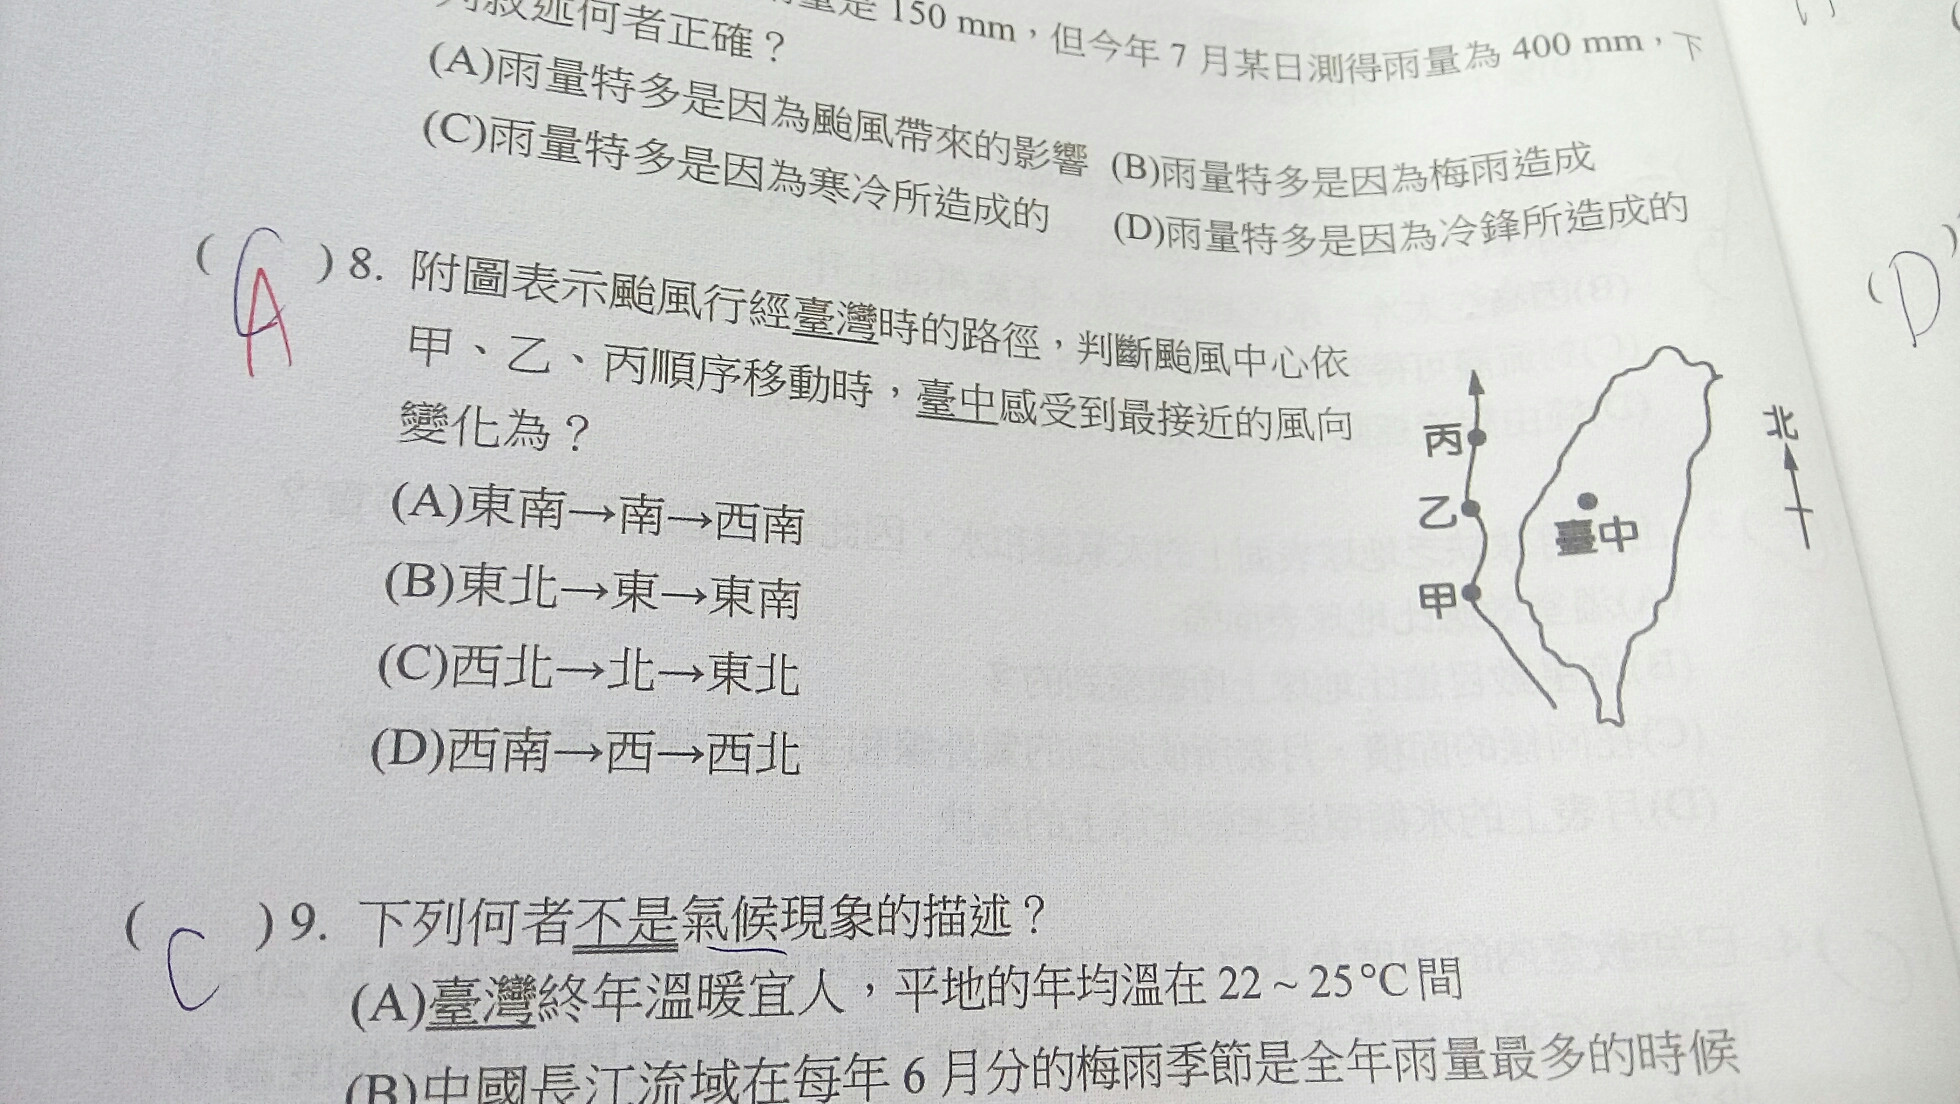 量是 150 mm，但今年 7 月某日測得雨量為 400 mm，下
列敘述何者正確？
(A)雨量特多是因為颱風帶來的影響 (B)雨量特多是因為梅雨造成
(C)雨量特多是因為寒冷所造成的 (D)雨量特多是因為冷鋒所造成的
( C A ) 8. 附圖表示颱風行經臺灣時的路徑，判斷颱風中心依
甲、乙、丙順序移動時，臺中感受到最接近的風向
變化為？
(A)東南→南→西南
(B)東北→東→東南
(C)西北→北→東北
(D)西南→西→西北
丙
乙
甲
臺中
北
(D)
( C ) 9. 下列何者不是氣候現象的描述？
(A)臺灣終年溫暖宜人，平地的年均溫在 22 ~ 25°C 間
(B)中國長江流域在每年 6 月分的梅雨季節是全年雨量最多的時候